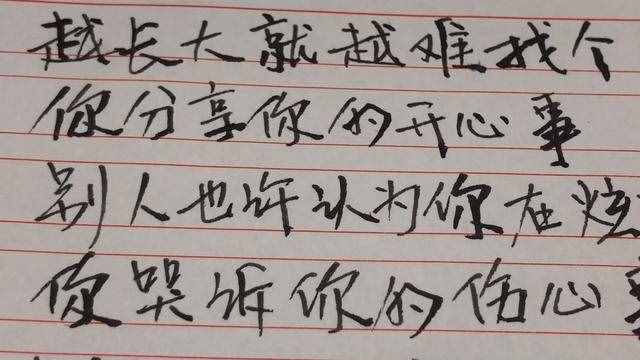 越长大就越难找个
你分享你的开心事
别人也许认为你在炫
你哭诉你的伤心